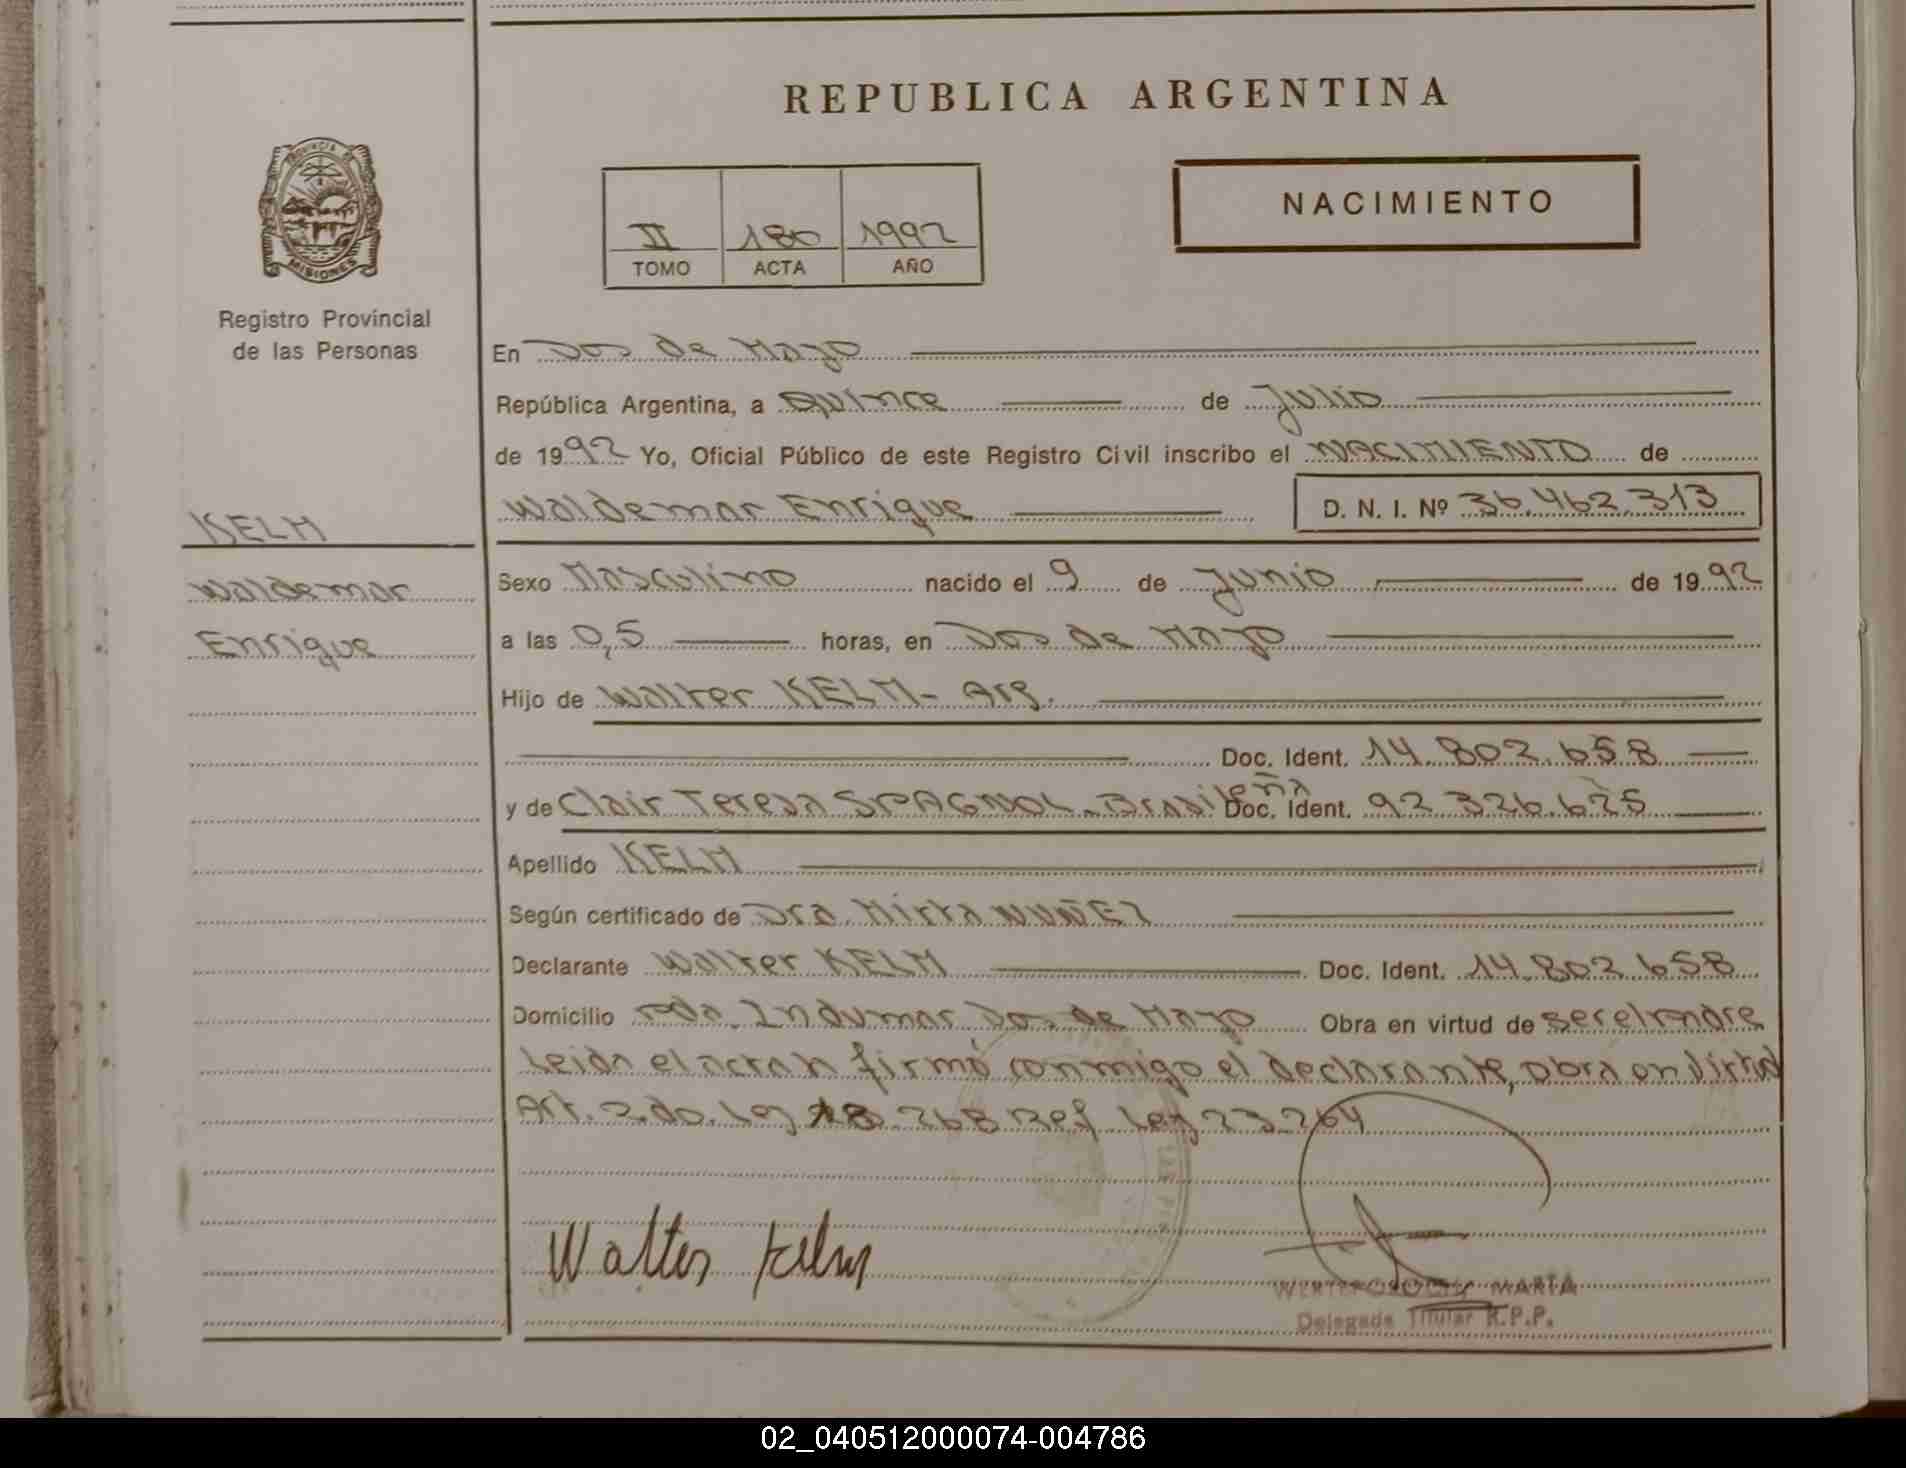 REPUBLICA ARGENTINA
PROVINCIA DE
MISIONES
Registro Provincial
de las Personas
II 180 1992
TOMO ACTA AÑO
NACIMIENTO
En Dos de Mayo
República Argentina, a Quince de Julio
de 1992 Yo, Oficial Público de este Registro Civil inscribo el NACIMIENTO de
Waldemar Enrique D. N. I. Nº 36.462.313
KELM
Waldemar
Enrique
Sexo Masculino nacido el 9 de Junio de 1992
a las 0,5 horas, en Dos de Mayo
Hijo de Walter KELM - Arg.
Doc. Ident. 14.802.658
y de Clair Teresa SPAGNOL - Brasileña Doc. Ident. 92.326.625
Apellido KELM
Según certificado de Dra. Mirta NUÑEZ
Declarante Walter KELM Doc. Ident. 14.802.658
Domicilio Indumar Dos de Mayo Obra en virtud de ser el
Leida el acta firmó conmigo el declarante, obra en virtud
Art. 2.do. Ley 18.268 Ref Ley 23.264
Walter Kelm
MARTA
Delegada Titular R.P.P.
02_040512000074-004786